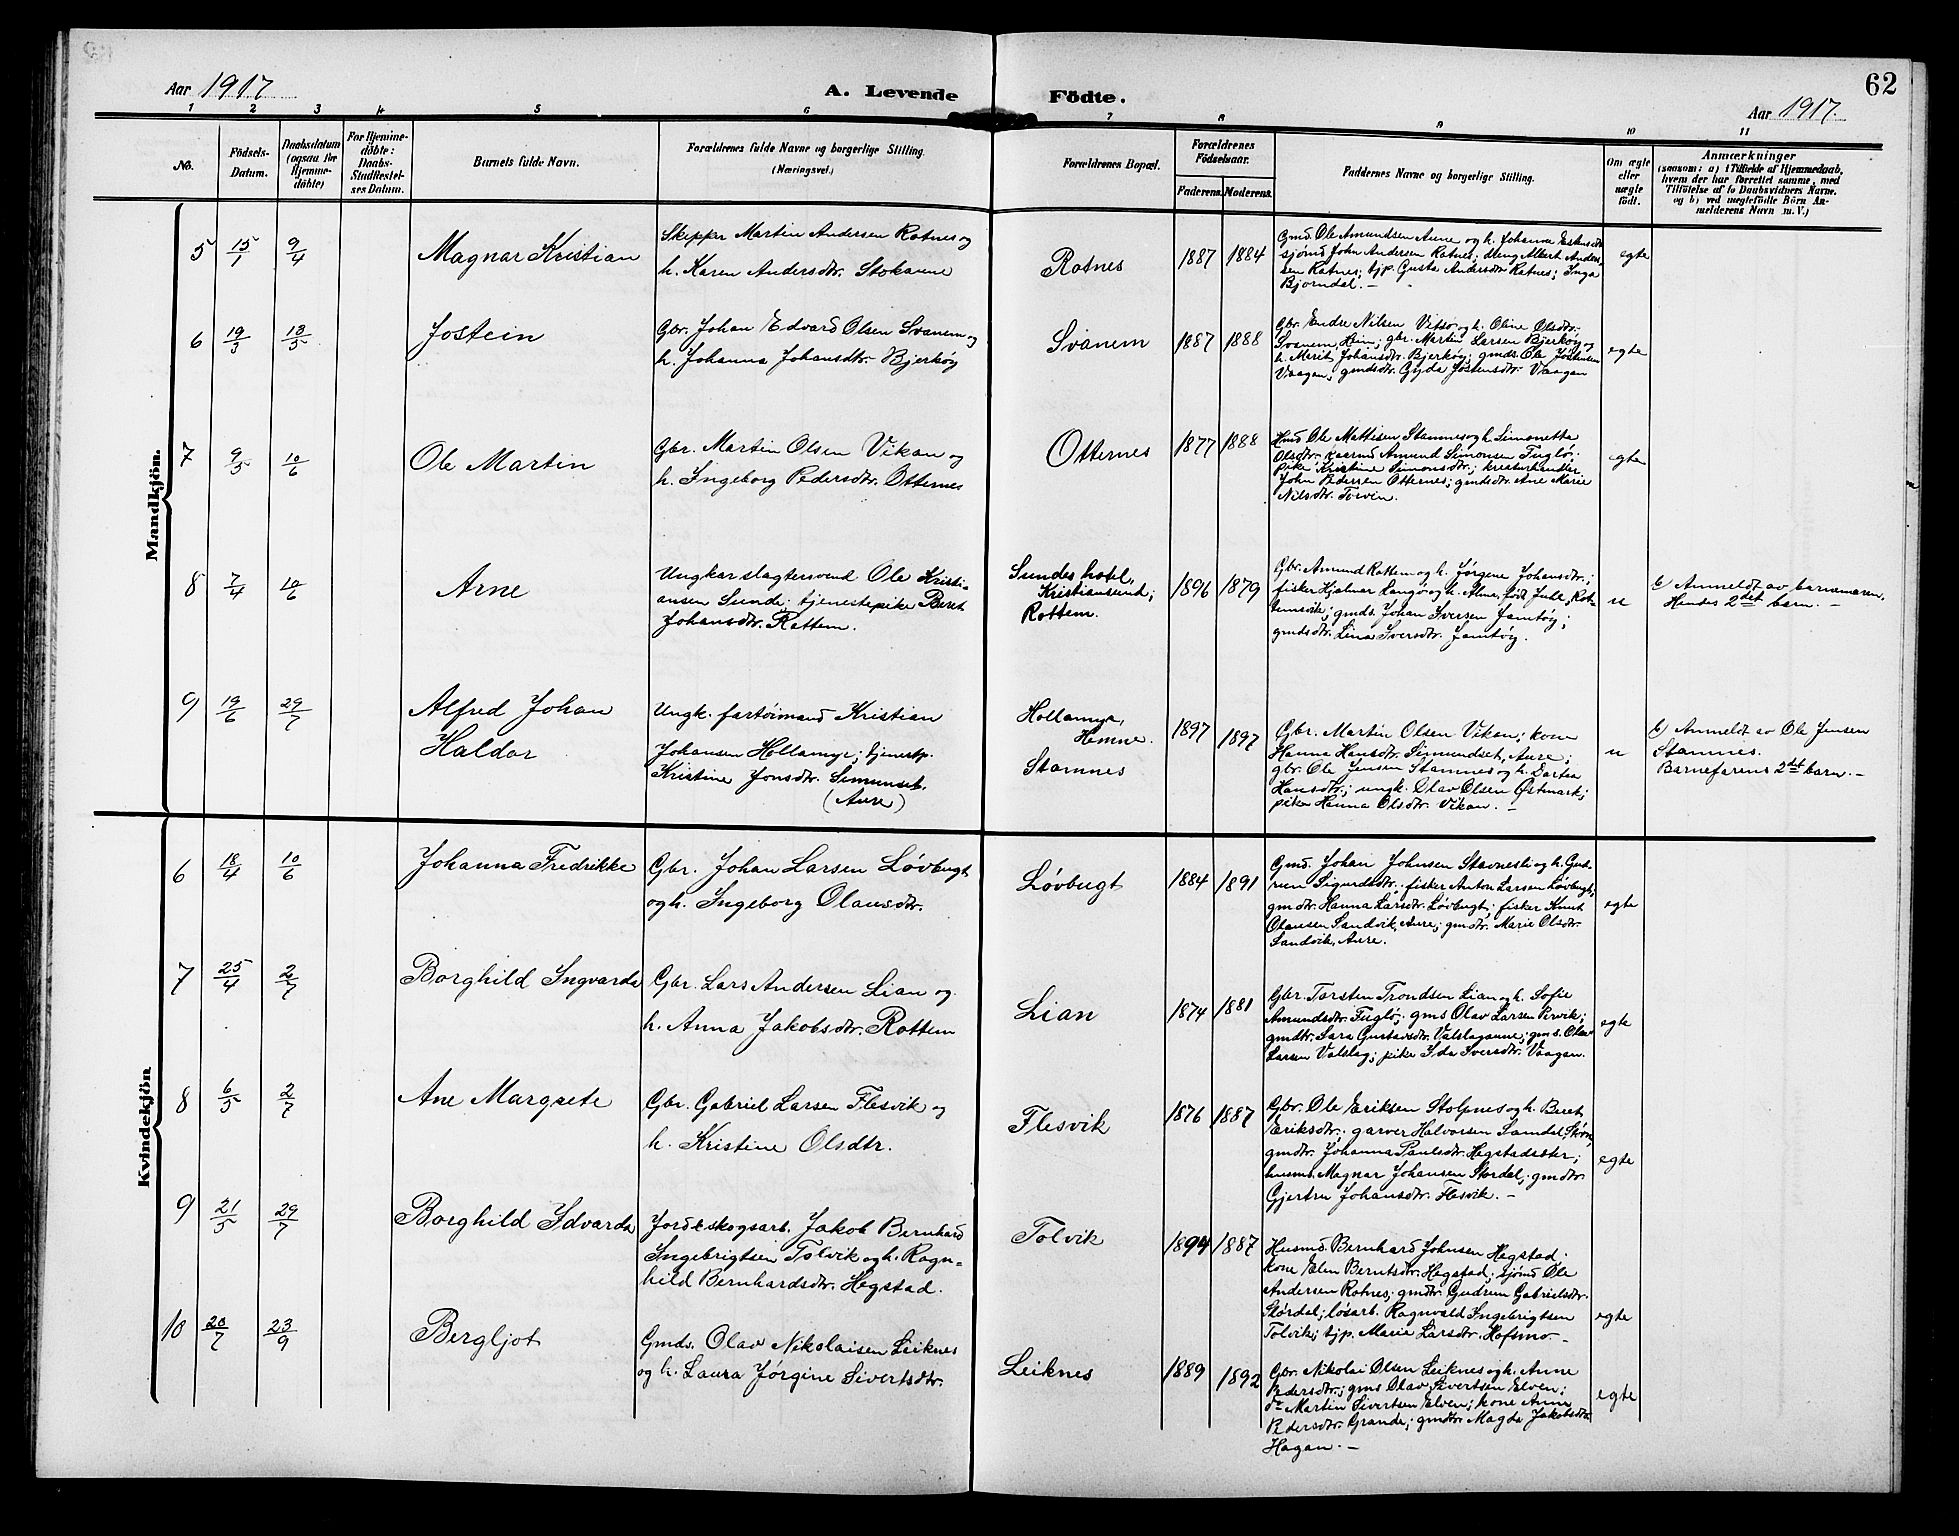 62
Aar 1917
A. Levende Födte.
Aar 1917.
1 2 3 4 5 6 7 8 9 10 11
No.
Födsels-
Datum.
Daabsdatum
(ogsaa for
Hjemme-
döbte)
For Hjemme-
döbte:
Daabs-
Stadfæstel-
ses Datum.
Barnets fulde Navn.
Forældrenes fulde Navne og borgerlige Stilling.
(Næringsvei.)
Forældrenes Bopæl.
Forældrenes
Födselsaar.
Faderens. Moderens.
Faddernes Navne og borgerlige Stilling.
Om ægte
eller
uægte
født.
Anmærkninger
(saasom: a) i Tilfælde af Hjemmedaab,
hvem der har forrettet samme, med
Tilföielse af to Daabsvidners Navne.
og b) ved uægtefödte Börn An-
melderens Navn m. V.)
Mandkjön.
5 15/1 9/4
Magnar Kristian
Skipper Martin Andersen Rotnes og
h. Karen Andersdtr. Stokaune
Rotnes
1887 1884
Gmd. Ole Amundsen Aune og h. Johanna Estensdtr
sjömd John Andersen Rotnes; Meng Albert Ander-
sen Rotnes; tjp. Gusta Andersdtr Rotnes; Inga
Bjørndal. —
egte
6 19/3 13/5
Jostein
Gbr. Johan Edvard Olsen Svanem og
h. Johanna Johansdtr. Bjerkøy
Svanem
1887 1888
Gbr. Endre Nilsen Vitsø og h. Oline Olsdtr.
Svanem, Heim; gbr. Martin Larsen Bjerkøy og
h. Merit Johansdtr. Bjerkøy; gmds. Ole Jostensen
Vaagan; gmdsdtr. Gyda Jostensdtr. Vaagan
egte
7 9/5 10/6
Ole Martin
Gbr. Martin Olsen Vikan og
h. Ingeborg Pedersdtr. Otternes
Otternes
1877 1888
Hmd Ole Mattisen Stamnes og h. Simonetta
Olsdtr. kaarmd Amund Simonsen Fuglø;
pike Kristine Simonsdtr.; kreaturhandler
John Pedersen Otternes; gmdsdtr. Ane Marie
Nilsdtr. Torvin.
egte
8 7/4 10/6
Arne
Ungkar slagtersvend Ole Kristi-
ansen Sunde; tjenestepike Beret
Johansdtr. Rottem.
Sundes hotel,
Kristiansund;
Rottem.
1896 1879
Gbr. Amund Rottem og h. Jørgine Johansdtr.;
fisker Hjalmar Langø og h. Alma, født Juhl, Rot-
temsvik; gmds. Johan Iversen Jamtøy;
gmdsdtr. Lina Iversdtr. Jamtøy.
u
b) Anmeldt av barnemoren,
Hendes 2det barn. —
9 19/6 29/7
Alfred Johan
Haldor
Ungk. fartøimand Kristian
Johansen Hollamyr; tjenestp.
Kristine Jonsdtr. Simunset.
(Aure)
Hollamyr,
Hemne.
Stamnes
1897 1897
Gbr. Martin Olsen Vikan; kone
Hanna Hansdtr. Simundset, Aure;
gbr. Ole Jensen Stamnes og h. Dortea
Hansdtr.; ungk. Olav Olsen Østmark;
pike Hanna Olsdtr. Vikan. —
u
b) Anmeldt av Ole Jensen
Stamnes.
Barnefarens 2det barn. —
Kvindekjön
6 18/4 10/6
Johanna Fredrikke
Gbr. Johan Larsen Løvbugt
og h. Ingeborg Olausdtr.
Løvbugt
1884 1891
Gmd. Johan Johnsen Stavnesli og h. Gud-
run Sigurdsdtr.; fisker Anton Larsen Løvbugt;
gmdtr. Hanna Larsdtr. Løvbugt; fisker Knut
Olausen Sandvik, Aure; gmdtr. Marie Olsdtr.
Sandvik, Aure.
egte
7 25/4 2/7
Borghild Ingvarda
Gbr. Lars Andersen Lian og
h. Anna Jakobsdtr. Rottem
Lian
1874 1881
Gbr. Torsten Trondsen Lian og h. Sofie
Amundsdtr. Fuglø; gms Olav Larsen Rovik;
gmdtr. Sara Gustavsdtr. Valslagaune; gms. Olav
Larsen Valslag; pike Ida Iversdtr. Vaagan.
egte
8 6/5 2/7
Ane Margrete
Gbr. Gabriel Larsen Flesvik og
h. Kristine Olsdtr.
Flesvik
1876 1887
Gbr. Ole Eriksen Stolpnes og h. Beret
Eriksdtr.; garver Halvorsen
gmdtr. Johanna Paulsdtr. Hegstadsæter;
husmd. Magnar Johansen Stordal; gmdtr
Gjertru Johansdtr. Flesvik. —
egte
9 21/5 29/7
Borghild Edvarda
Jord & skogsarb. Jakob Bernhard
Ingebrigtsen Tolvik og h. Ragn-
hild Bernhardsdtr. Hegstad.
Tolvik
1894 1887
Husmd. Bernhard Johnsen Hegstad;
kone Elen Berntsdtr. Hegstad; sjömd Ole
Andersen Rotnes; gmdtr. Gudrun Gabrielsdtr.
Stordal; løsarb. Ragnvald Ingebrigtsen
Tolvik; tjp. Marie Larsdtr. Hofsmo —
egte
10 20/7 23/9
Bergljot
Gmds. Olav Nikolaisen Leiknes
og h. Laura Jørgine Sivertsdtr.
Leiknes
1889 1892
Gbr. Nikolai Olsen Leiknes og h. Anne
Pedersdtr.; gms Olav Sivertsen Elven;
do Martin Sivertsen Elven; kone Anne
Pedersdtr. Grande; gmdtr. Magda Jakobsdtr.
Hagan. —
egte